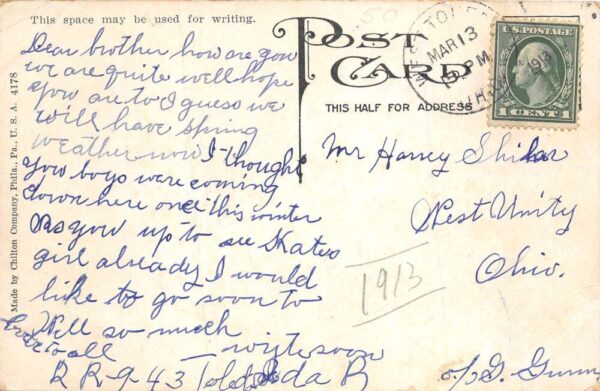 This space may be used for writing.
Dear brother how are you
we are quite well hope
you are to I guess we
will have spring
weather now I thought
you boys were coming
down here once this winter
as you up to see Kates
girl already I would
like to go soon to
Well so much
love to all write soon
R R-9-43 Toledo
Ida R
Made by Chilton Company, Phila., Pa., U. S. A. 4178
50
POST CARD
THIS HALF FOR ADDRESS
MAR 13
PM
1913
U.S. POSTAGE
1 CENT 1
Mr Harvey
West Unity
Ohio.
1913
c/o G.